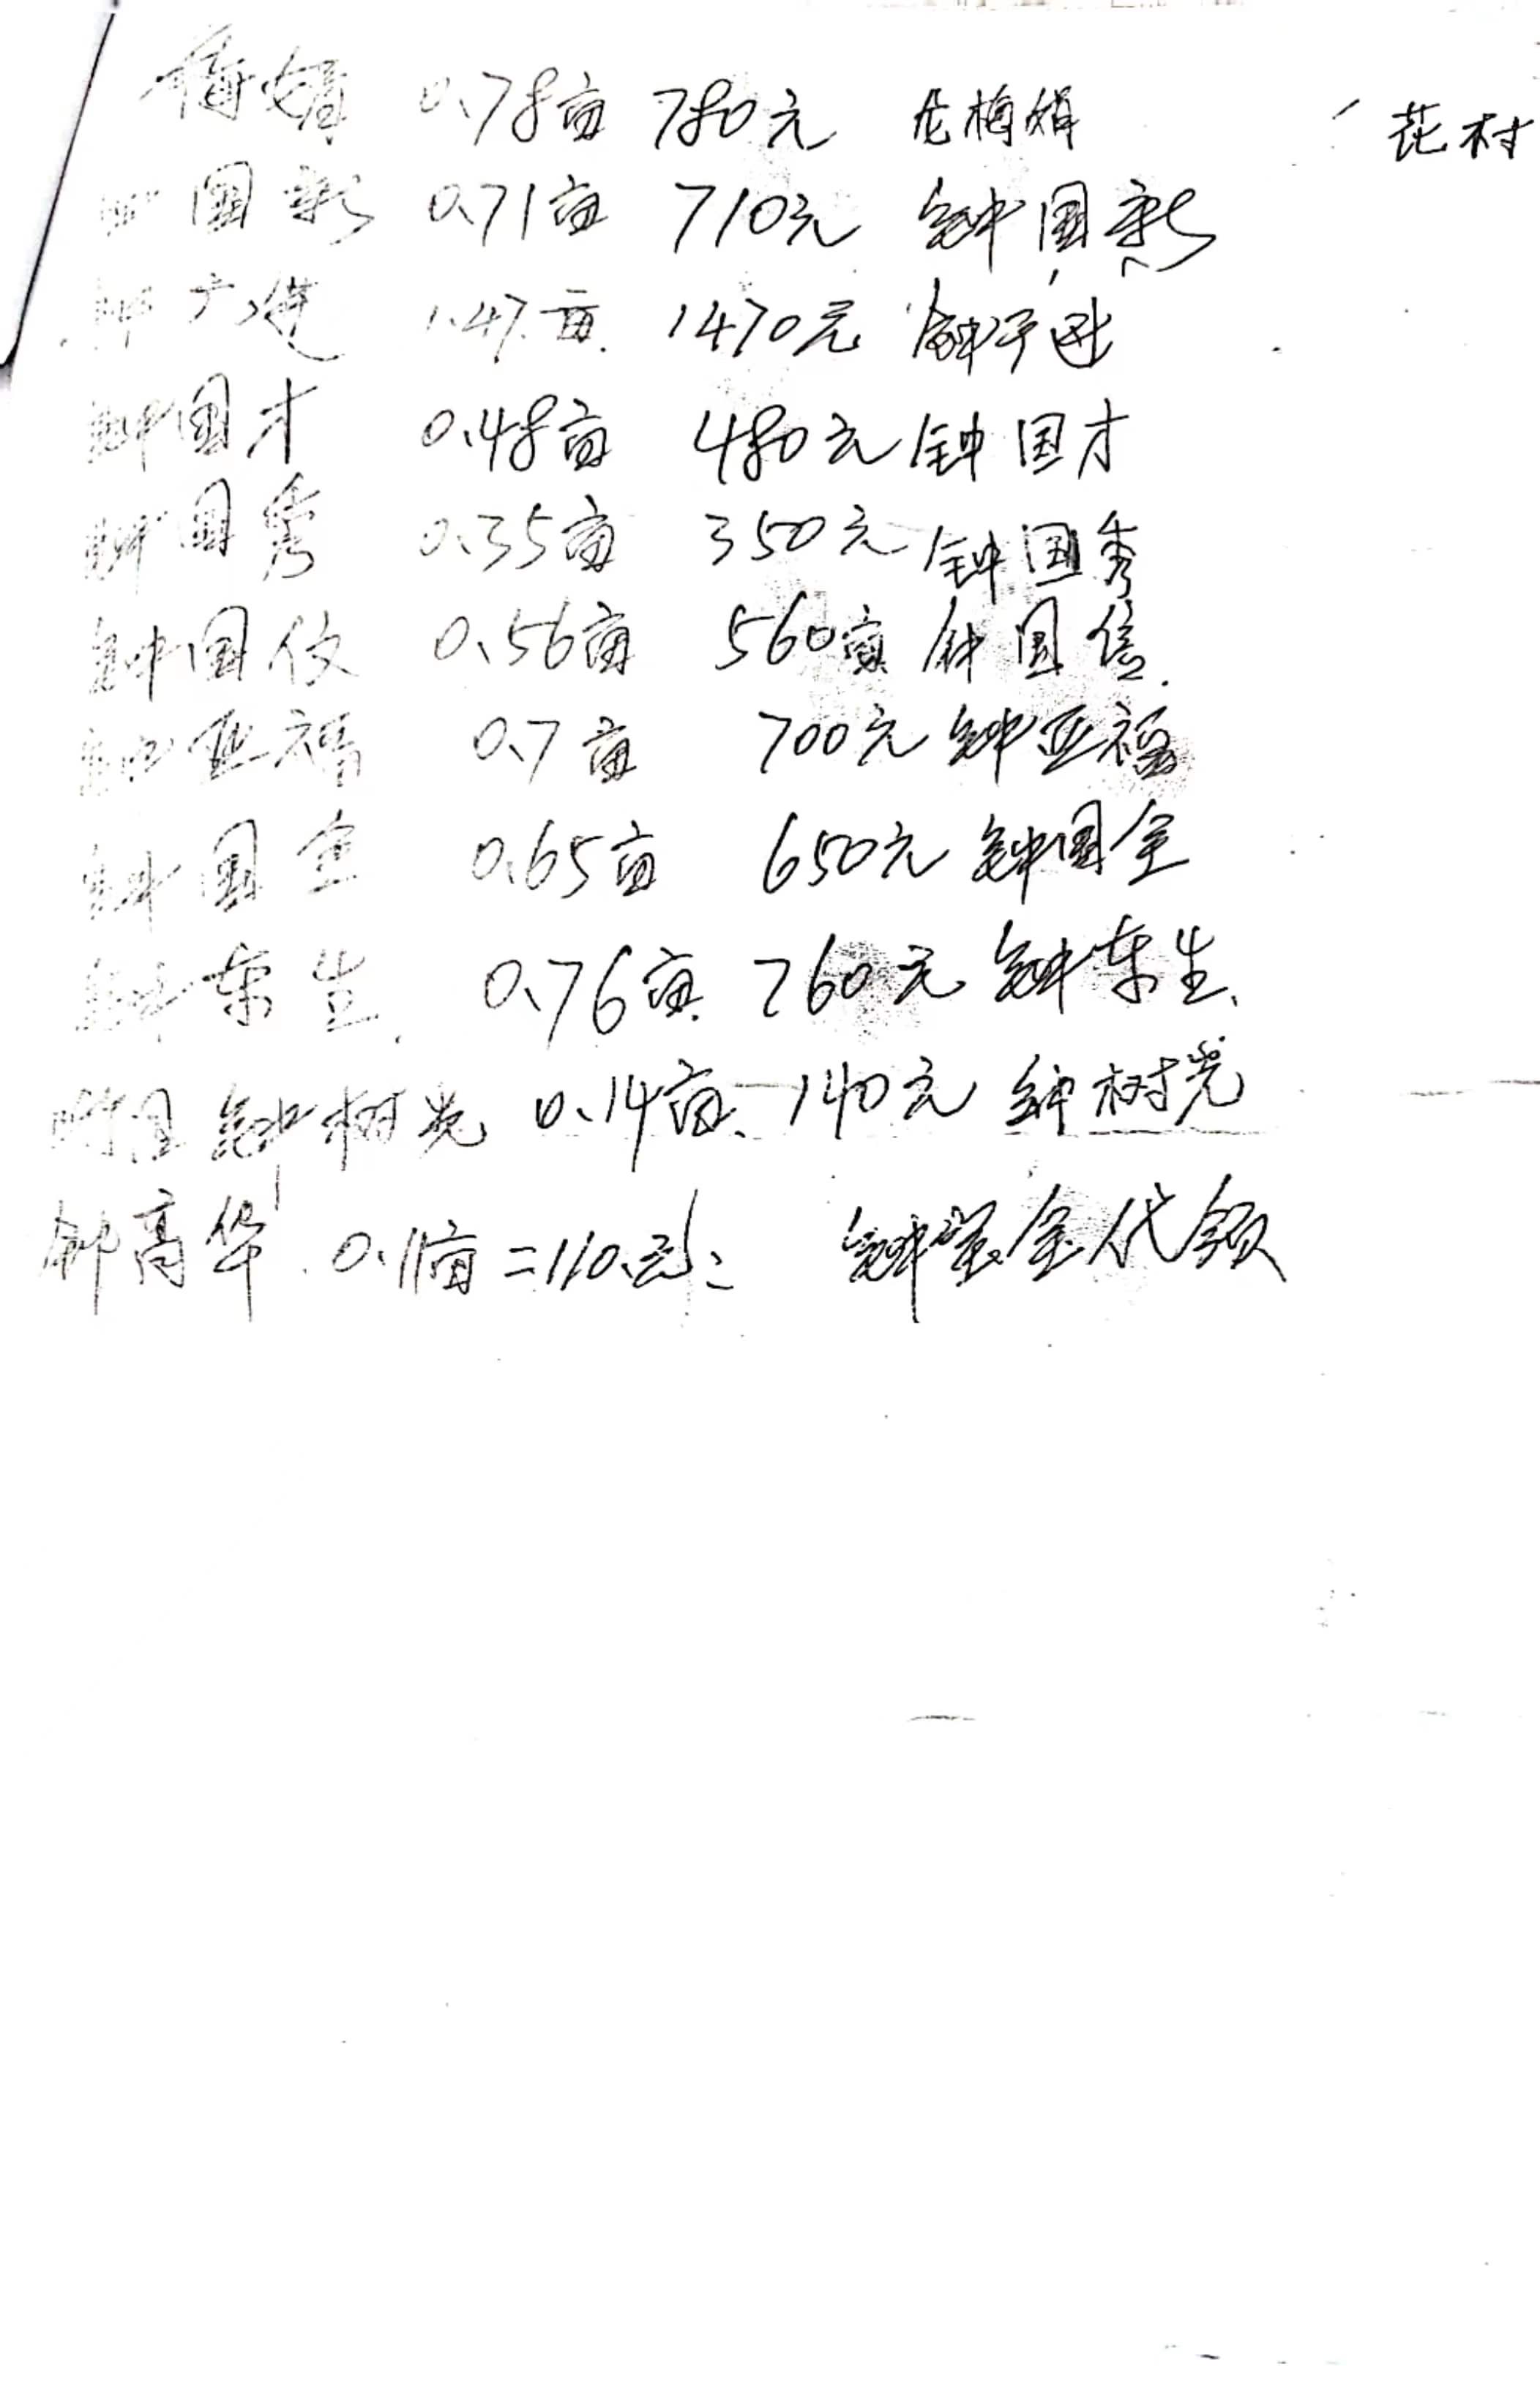 梅娟 0.78亩 780元 梅娟 花村
钟国新 0.71亩 710元 钟国新
钟 进 1.47亩. 1470元 钟 进
钟国才 0.48亩 480元 钟国才
钟国秀 0.35亩 350元 钟国秀
钟国仪 0.56亩 560亩 钟国信.
钟亚福 0.7亩 700元 钟亚福
钟国全 0.65亩 650元 钟国全
钟东生. 0.76亩. 760元 钟东生.
钟树光 0.14亩. 140元 钟树光
钟高华. 0.11亩=110.元 钟 金代领